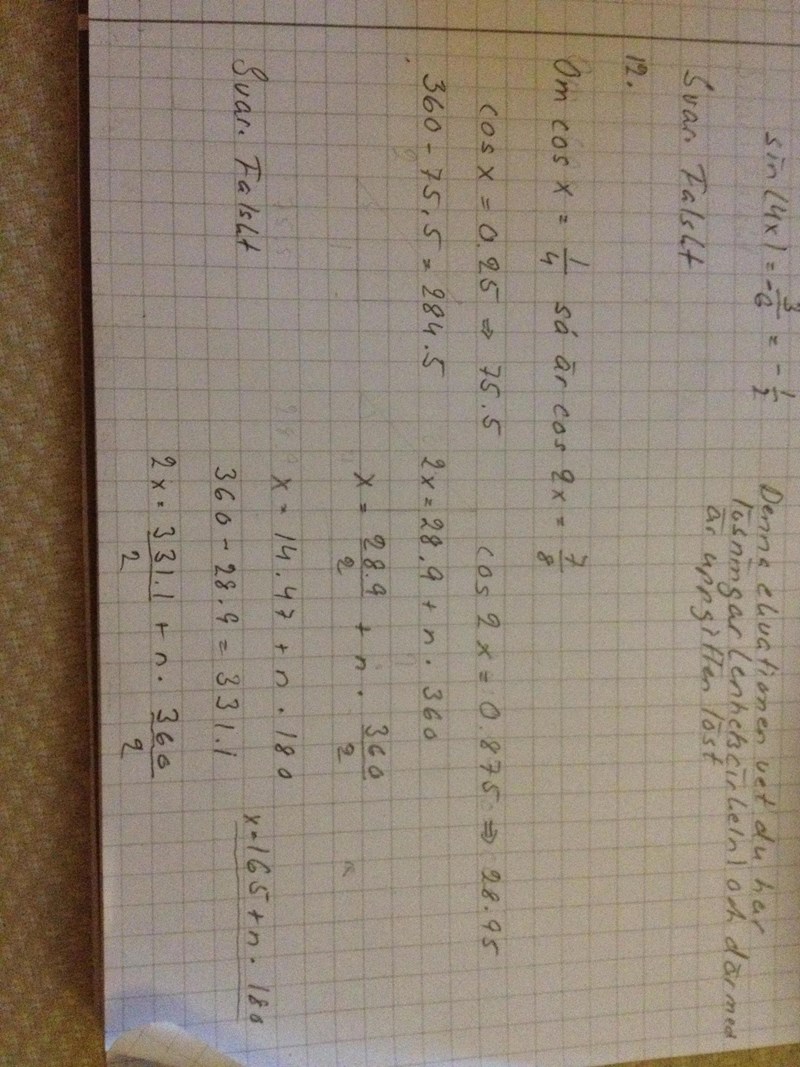 sin(4x) = 3/-6 = -1/2
Denna ekvationen vet du har
lösningar (enhetscirkeln) och därmed
är uppgiften löst
Svar: Falskt
12.
Om cos x = 1/4 så är cos 2x = 7/8
cos x = 0.25 ⇒ 75.5
cos 2x = 0.875 ⇒ 28.95
360 - 75,5 = 284.5
2x = 28.9 + n · 360
x = 28.9/2 + n · 360/2
x = 14.47 + n · 180
360 - 28.9 = 331.1
x = 165 + n · 180
2x = 331.1/2 + n · 360/2
Svar: Falskt